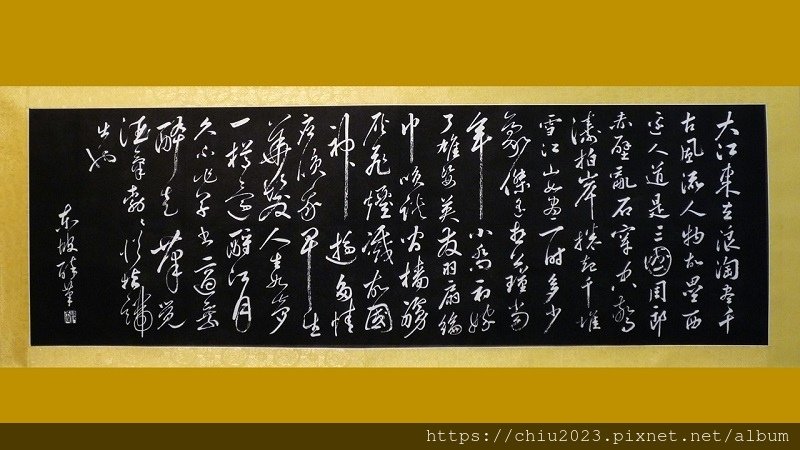 大江東去浪淘盡千
古風流人物故壘西
邊人道是三國周郎
赤壁亂石穿空驚
濤拍岸捲起千堆
雪江山如畫一時多少
豪傑遙想公瑾當
年小喬初嫁
了雄姿英發羽扇綸
巾談笑間檣艣
灰飛煙滅故國
神遊多情
應笑我早生
華髮人生如夢
一樽還酹江月
久不作草書適乘
醉走筆覺
酒氣勃勃從指端
出也
東坡醉筆
https://chiu2023.pixnet.net/album